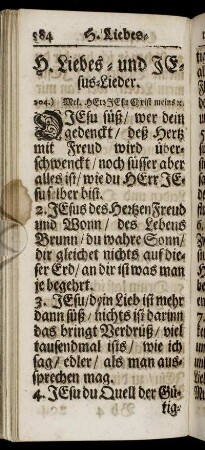 384 H. Liebes-
H. Liebes- und JE-
sus-Lieder.
204.) Mel. HErr JEsu Christ meins ꝛc.
O JEsu süß/ wer dein
gedenckt/ deß Hertz
mit Freud wird über-
schwenckt/ noch süsser aber
alles ist/ wie du HErr JE-
su selber bist.
2. JEsus des Hertzen Freud
und Wonn/ des Lebens
Brunn/ du wahre Sonn/
dir gleichet nichts auf die-
ser Erd/ an dir ist was man
je begehrt.
3. JEsu/ dein Lieb ist mehr
dann süß/ nichts ist darinn
das bringt Verdrüß/ viel
tausendmal ists/ wie ich
sag/ edler/ als man aus-
sprechen mag.
4. JEsu du Quell der Gü-
tig-